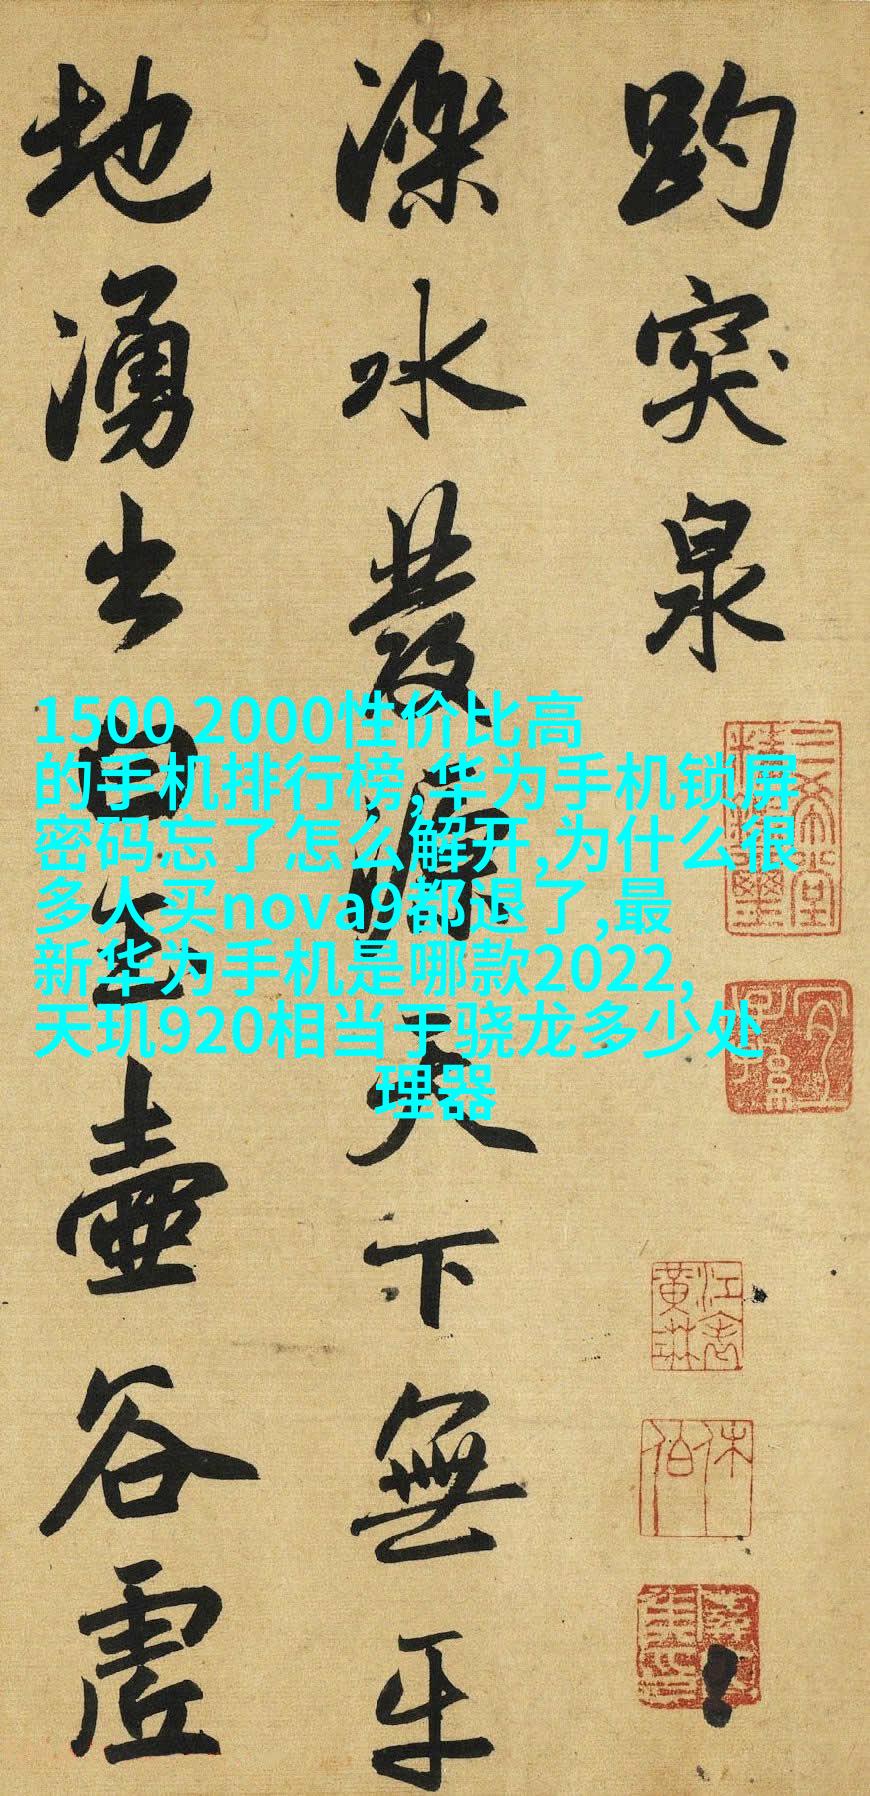 趵突泉
濼水發源天下無
地湧出白玉壺谷虛
1500 2000性价比高
的手机排行榜,华为手机锁屏
密码忘了怎么解开,为什么很
多人买nova9都退了,最
新华为手机是哪款2022,
天玑920相当于骁龙多少处
理器